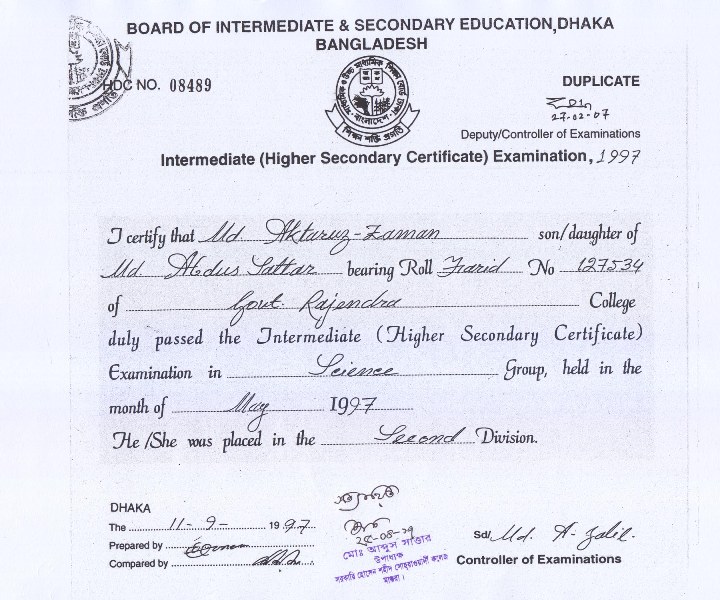 BOARD OF INTERMEDIATE & SECONDARY EDUCATION,DHAKA
BANGLADESH
HDC NO. 08489
DUPLICATE
27-02-07
Deputy/Controller of Examinations
Intermediate (Higher Secondary Certificate) Examination, 1997
I certify that Md. Aktaruz-Zaman son/daughter of
Md. Abdus Sattar bearing Roll Farid No 127534
of Govt. Rajendra College
duly passed the Intermediate (Higher Secondary Certificate)
Examination in Science Group, held in the
month of May 1997
He/She was placed in the Second Division.
DHAKA
The 11-9- 1997
Prepared by
Compared by
সত্যায়িত
মোঃ আব্দুস সাত্তার
উপাধ্যক্ষ
সরকারি হোসেন শহীদ সোহরাওয়ার্দী কলেজ
মাগুরা।
Sd/ Md. A. Jalil.
Controller of Examinations